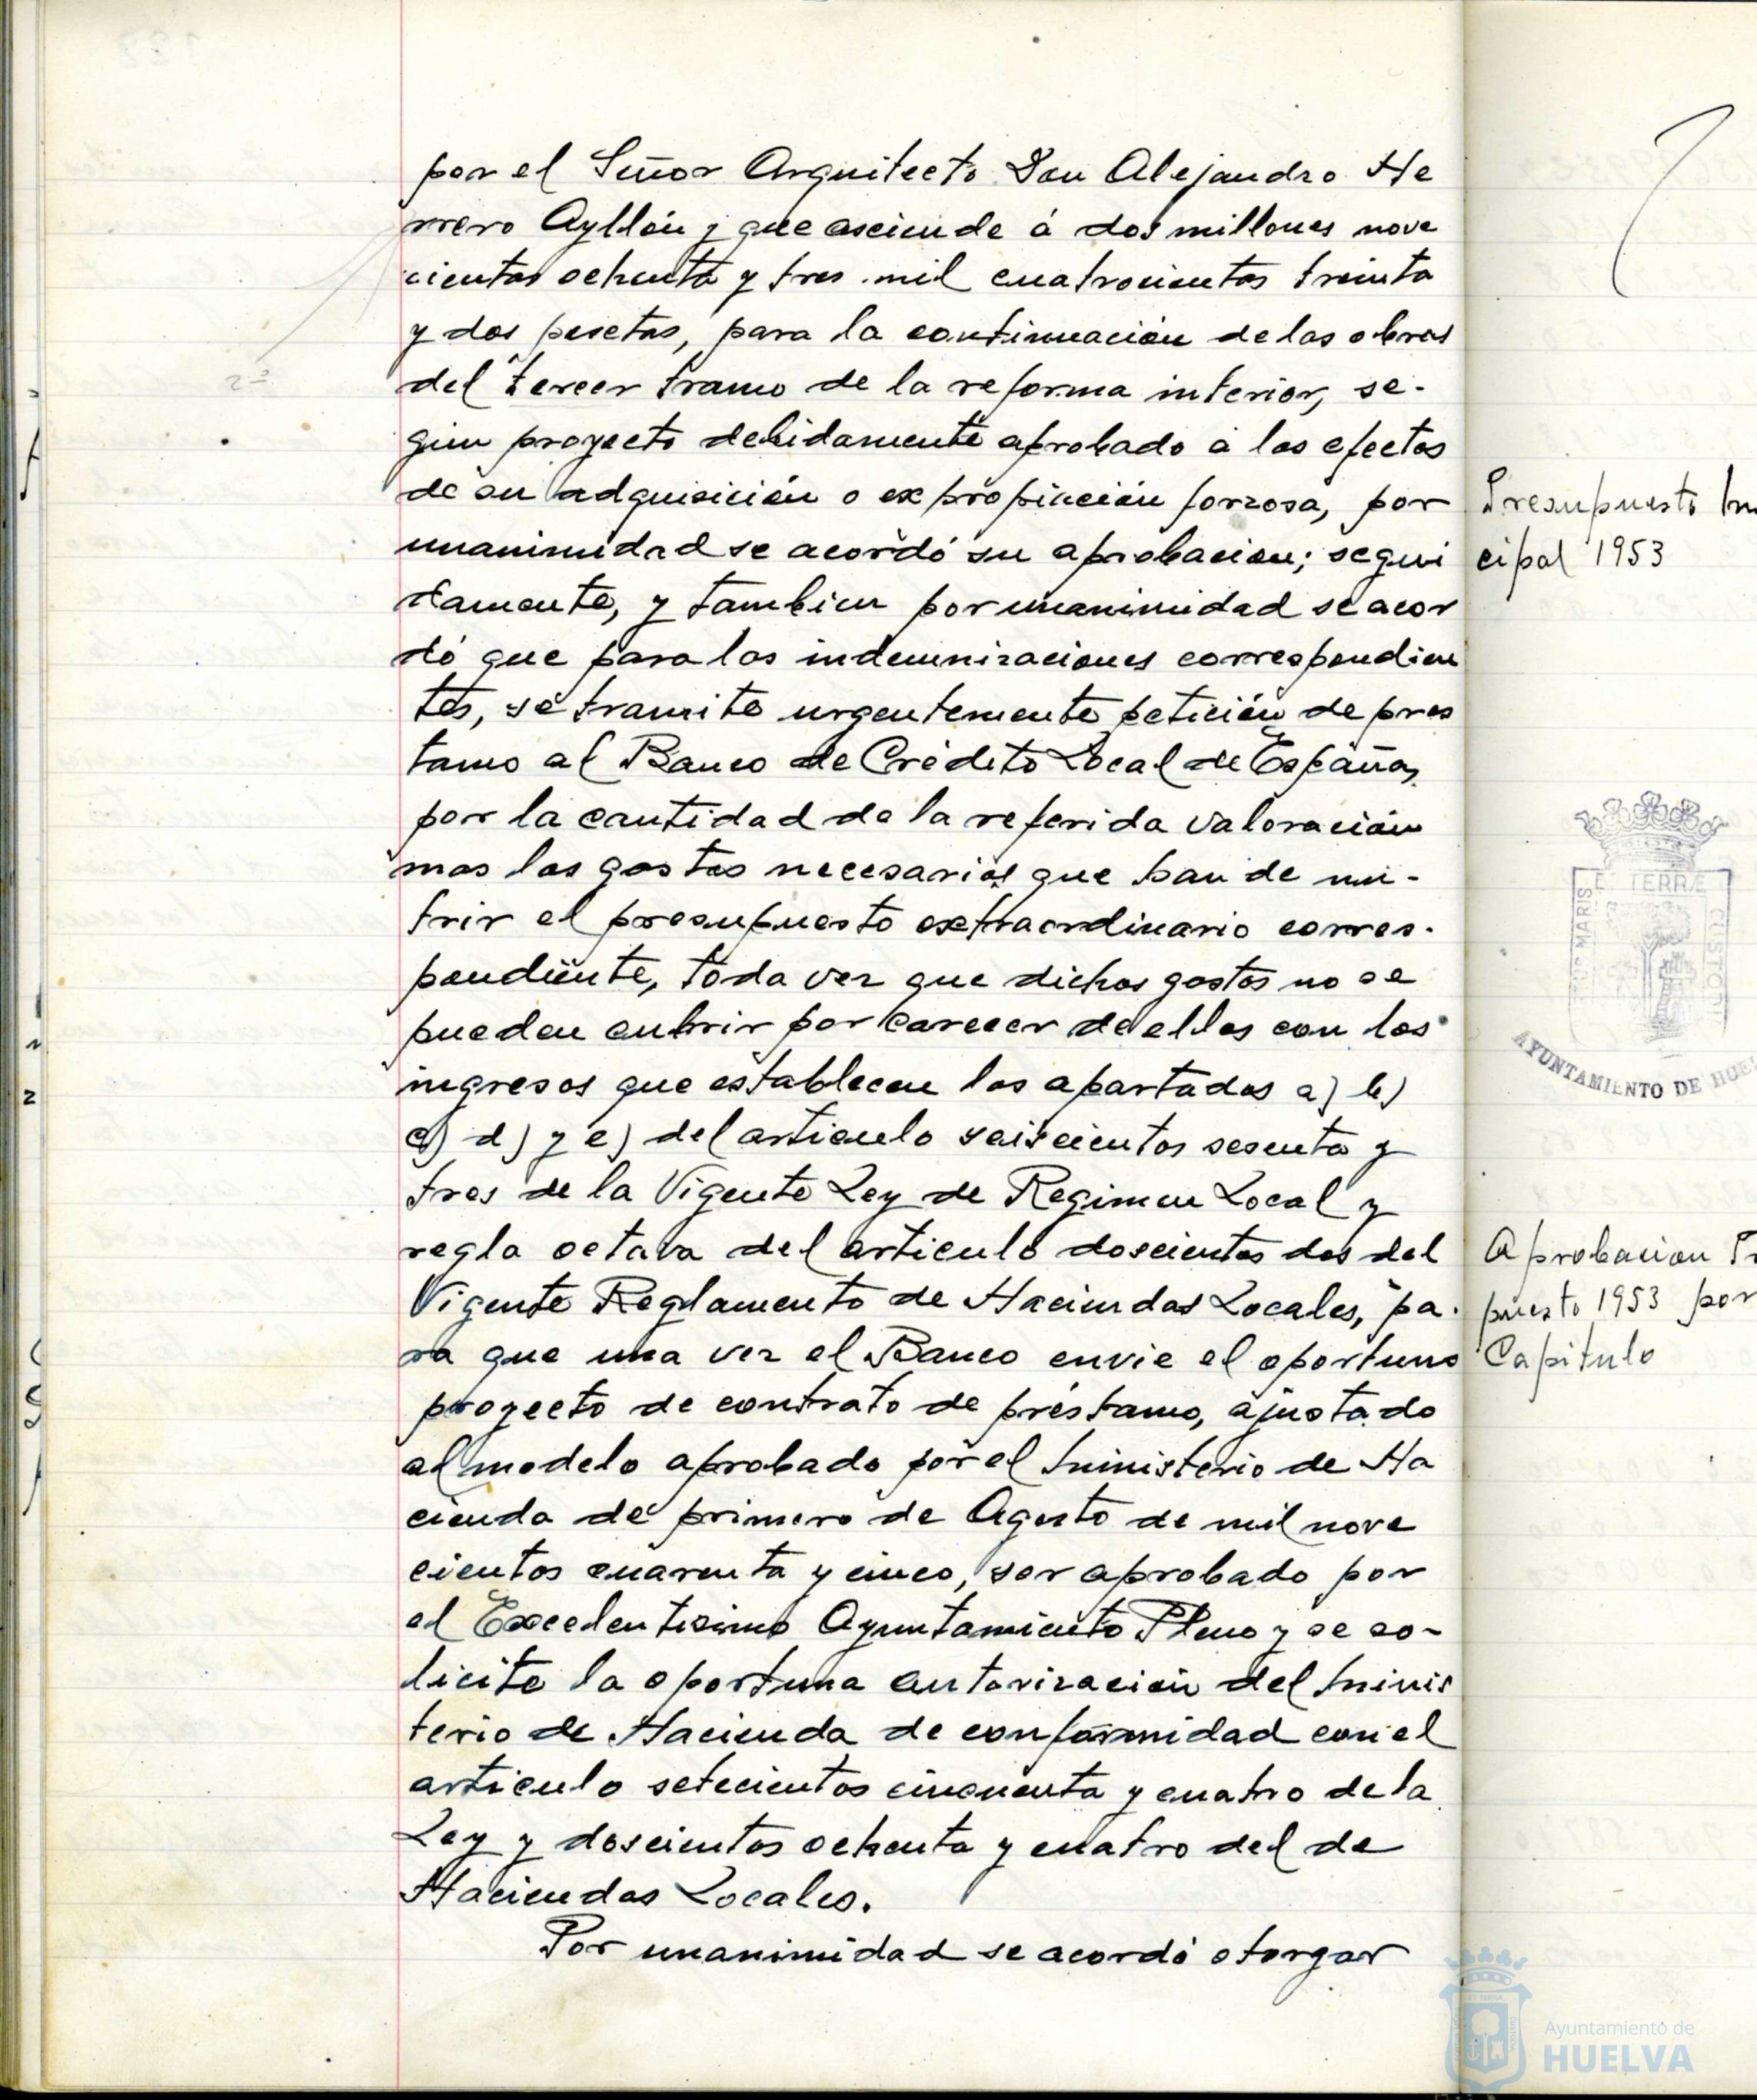 por el Señor Arquitecto Don Alejandro He
rrero Ayllón y que asciende á dos millones nove
cientas ochenta y tres mil cuatrocientas treinta
y dos pesetas, para la continuación de las obras
del tercer tramo de la reforma interior, se-
gún proyecto debidamente aprobado a los efectos
de su adquisición o expropiación forzosa, por
unanimidad se acordó su aprobacion; segui
damente, y tambien por unanimidad se acor
dó que para las indemnizaciones correspondien
tes, se tramite urgentemente petición de pres
tamo al Banco de Crédito Local de España,
por la cantidad de la referida valoración
mas los gastos necesarios que han de nu-
trir el presupuesto extraordinario corres-
pondiente, toda vez que dichos gastos no se
pueden cubrir por carecer de ellos con los
ingresos que establecen los apartados a) b)
c) d) y e) del articulo seiscientos sesenta y
tres de la Vigente Ley de Regimen Local y
regla octava del articulo doscientos dos del
Vigente Reglamento de Haciendas Locales, pa-
ra que una vez el Banco envie el oportuno
proyecto de contrato de préstamo, ajustado
al modelo aprobado por el Ministerio de Ha
cienda de primero de Agosto de mil nove
cientos cuarenta y cinco, ser aprobado por
el Excelentisimo Ayuntamiento Pleno y se so-
licite la oportuna autorización del Minis
terio de Hacienda de conformidad con el
articulo setecientos cincuenta y cuatro de la
Ley y doscientos ochenta y cuatro del de
Haciendas Locales.
Por unanimidad se acordó otorgar
2º
Presupuesto
cipal 1953
TERRÆ
MARIS
CUSTODI
AYUNTAMIENTO DE HUE
Aprobacion
puesto 1953 por
Capitulo
Ayuntamiento de
HUELVA